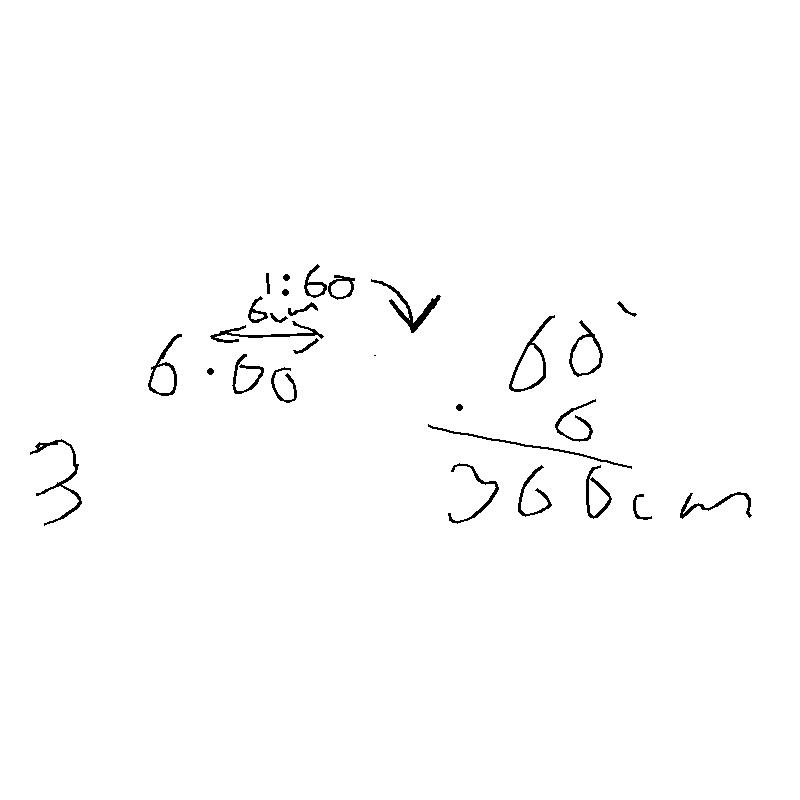 1:60
6cm
6·60
60
· 6
360cm
3